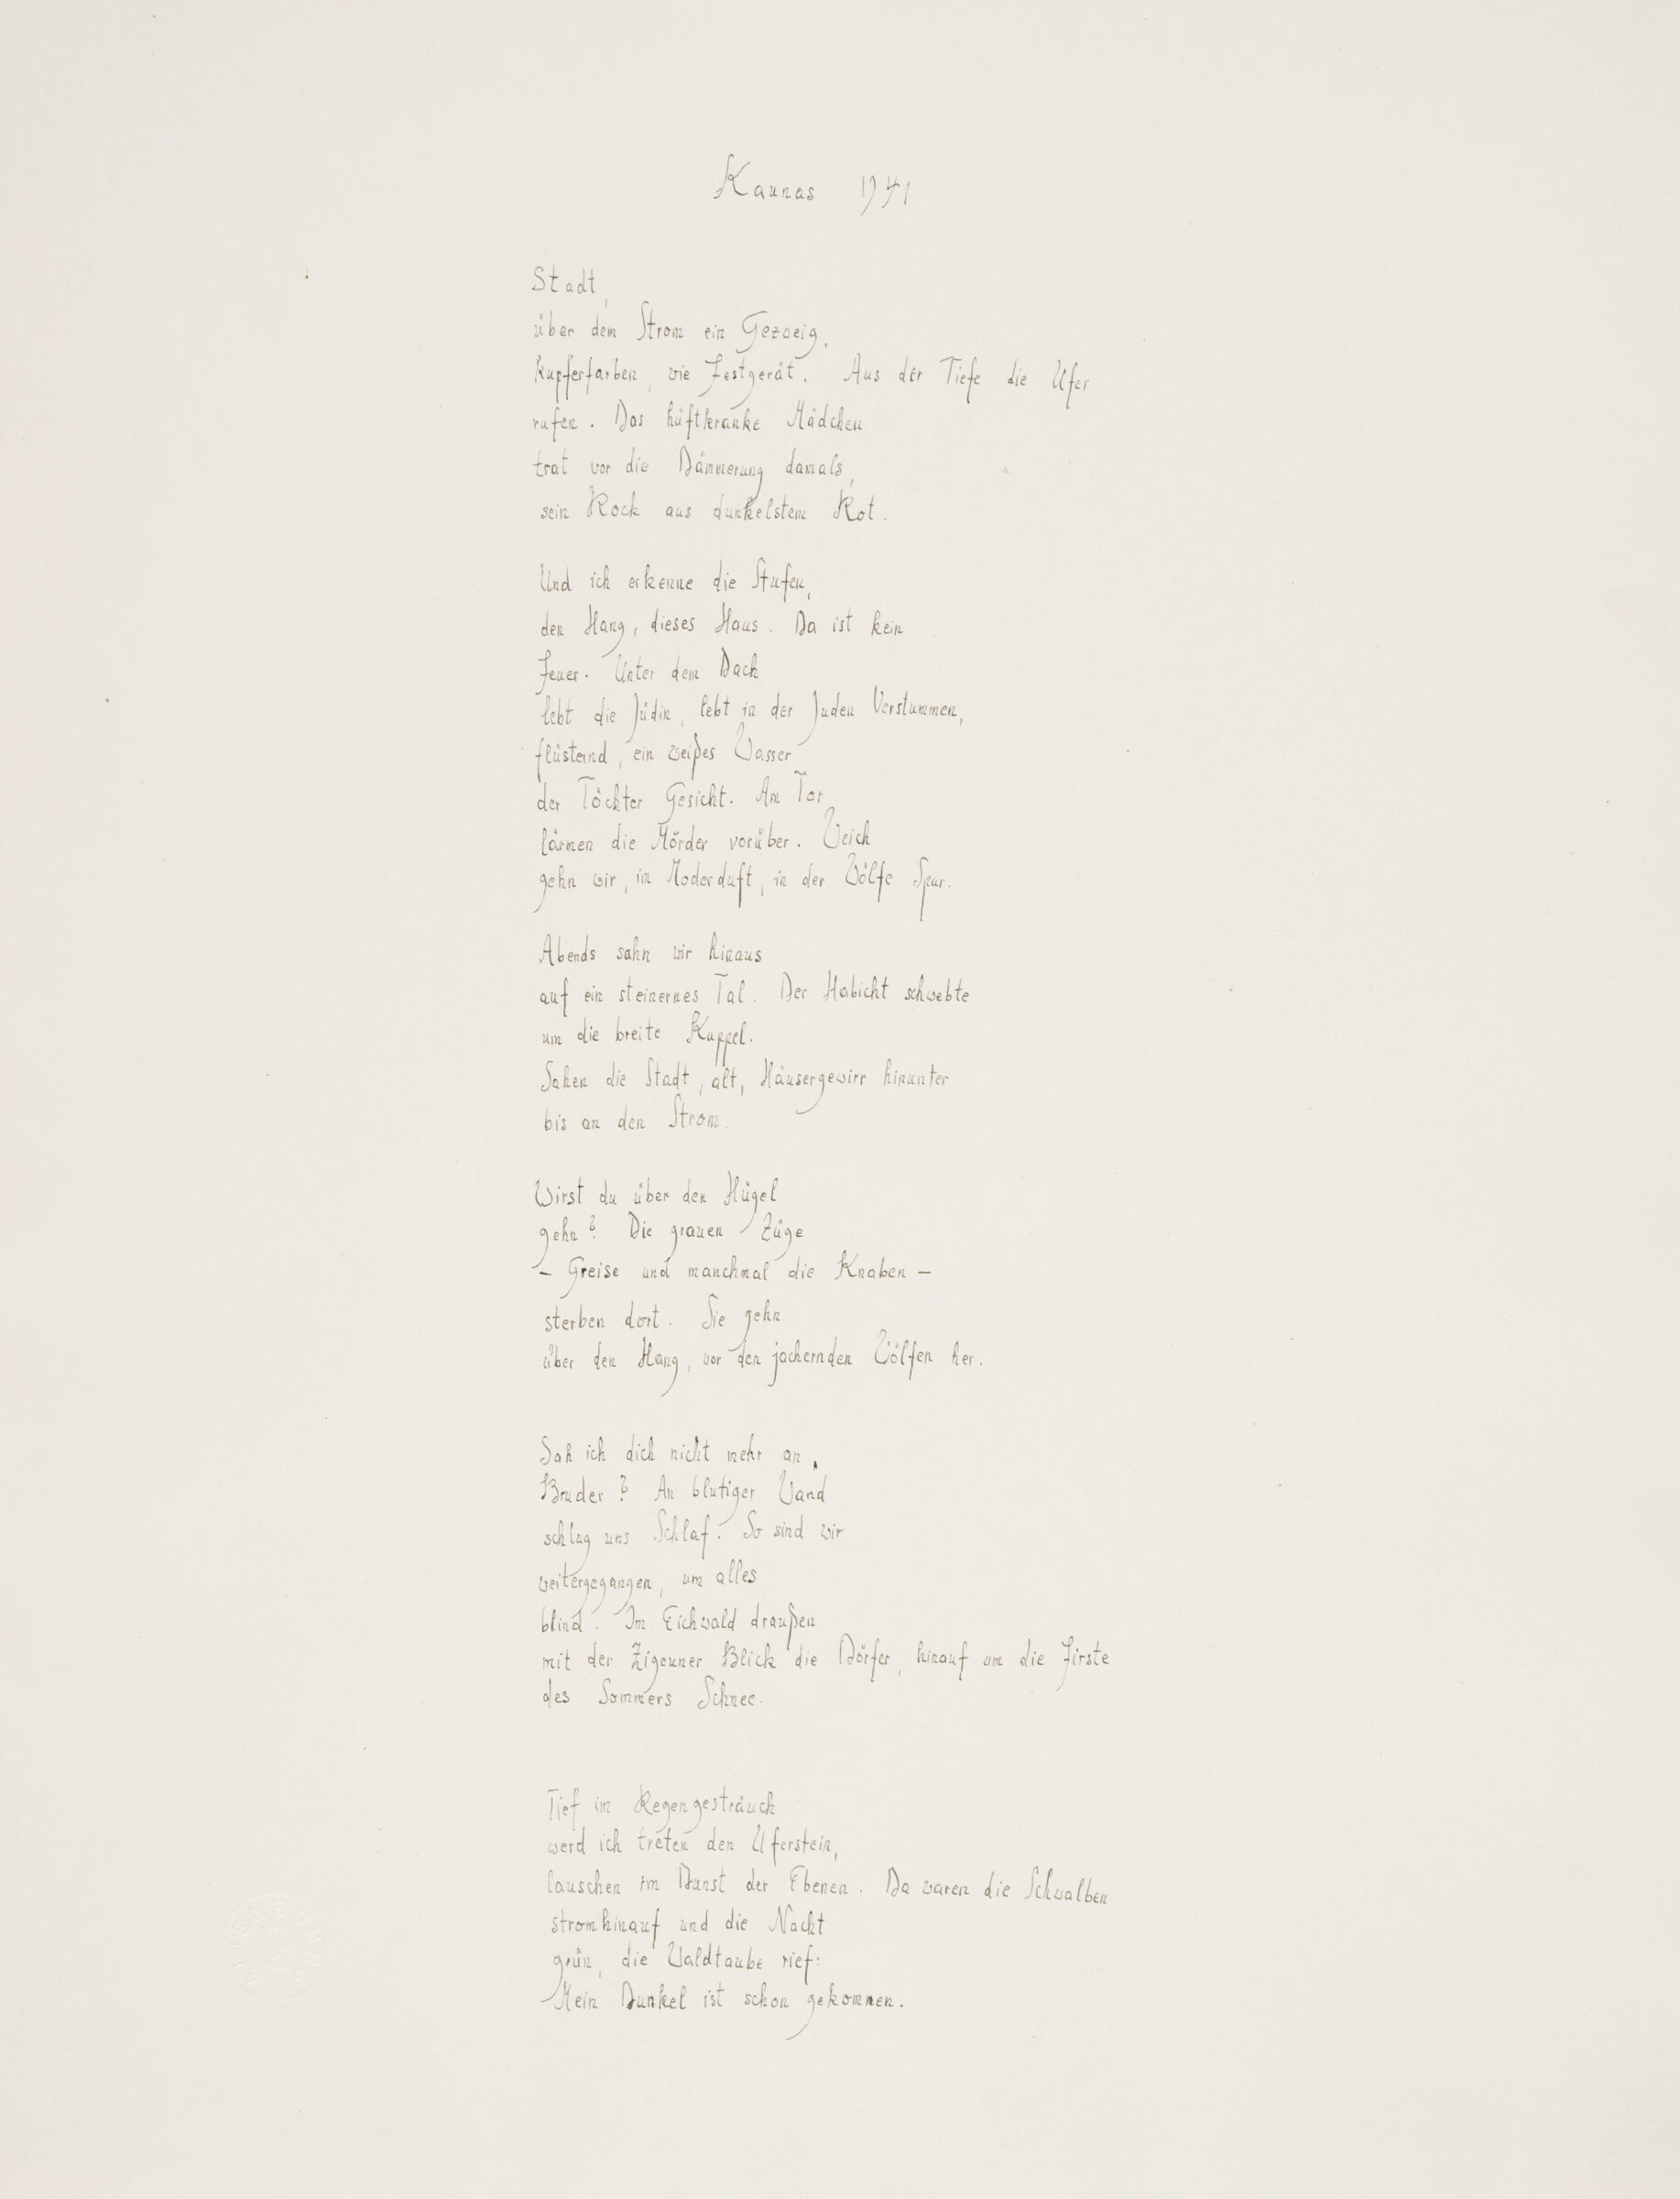 Kaunas 1941
Stadt,
über dem Strom ein Gezweig,
kupferfarben, wie Festgerät. Aus der Tiefe die Ufer
rufen. Das hüftkranke Mädchen
trat vor die Dämmerung damals,
sein Rock aus dunkelstem Rot.
Und ich erkenne die Stufen,
den Hang, dieses Haus. Da ist kein
Feuer. Unter dem Dach
lebt die Jüdin, lebt in der Juden Verstummen,
flüsternd, ein weißes Wasser
der Töchter Gesicht. Am Tor
lärmen die Mörder vorüber. Weich
gehn wir, im Moderduft, in der Wölfe Spur.
Abends sahn wir hinaus
auf ein steinernes Tal. Der Habicht schwebte
um die breite Kuppel.
Sahen die Stadt, alt, Häusergewirr hinunter
bis an den Strom.
Wirst du über den Hügel
gehn? Die grauen Züge
– Greise und manchmal die Knaben –
sterben dort. Sie gehn
über den Hang, vor den jachernden Wölfen her.
Sah ich dich nicht mehr an,
Bruder? An blutiger Wand
schlug uns Schlaf. So sind wir
weitergegangen, um alles
blind. Im Eichwald draußen
mit der Zigeuner Blick die Dörfer, hinauf um die Firste
des Sommers Schnee.
Tief im Regengesträuch
werd ich treten den Uferstein,
lauschen im Dunst der Ebenen. Da waren die Schwalben
stromhinauf und die Nacht
grün, die Waldtaube rief:
Mein Dunkel ist schon gekommen.